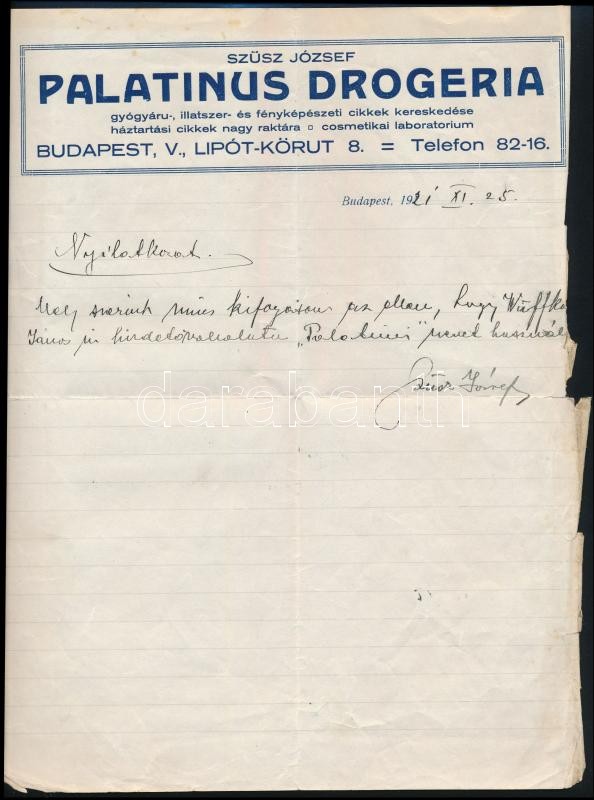 SZÜSZ JÓZSEF
PALATINUS DROGERIA
gyógyáru-, illatszer- és fényképészeti cikkek kereskedése
háztartási cikkek nagy raktára ▫ cosmetikai laboratorium
BUDAPEST, V., LIPÓT-KÖRUT 8. = Telefon 82-16.
Budapest, 1921 XI. 25.
Nyilatkozat.
Mely szerint nincs kifogásom az ellen, hogy Wuffka
János úr hirdetővállalata „Palatinus" nevet használ
Szüsz József
darabanth